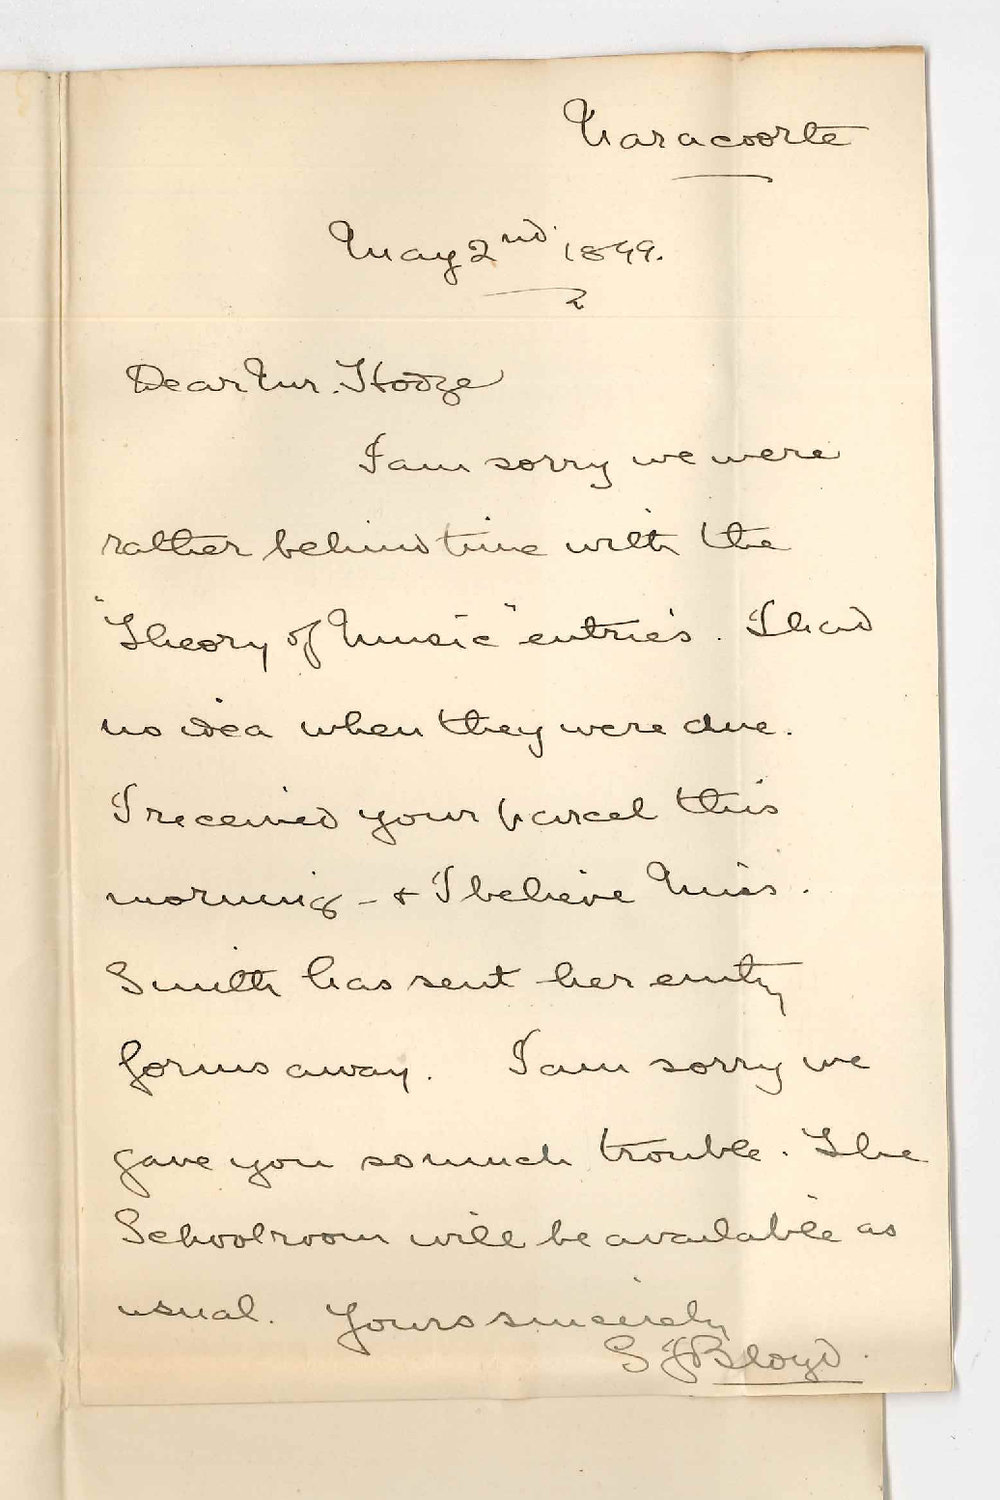 Naracoorte
May 2nd. 1899.
Dear Mr. Hodge
I am sorry we were
rather behind time with the
"Theory of Music" entries. I had
no idea when they were due.
I received your parcel this
morning - & I believe Miss.
Smith has sent her entry
forms away. I am sorry we
gave you so much trouble. The
Schoolroom will be available as
usual. Yours sincerely
S J Bloyd.